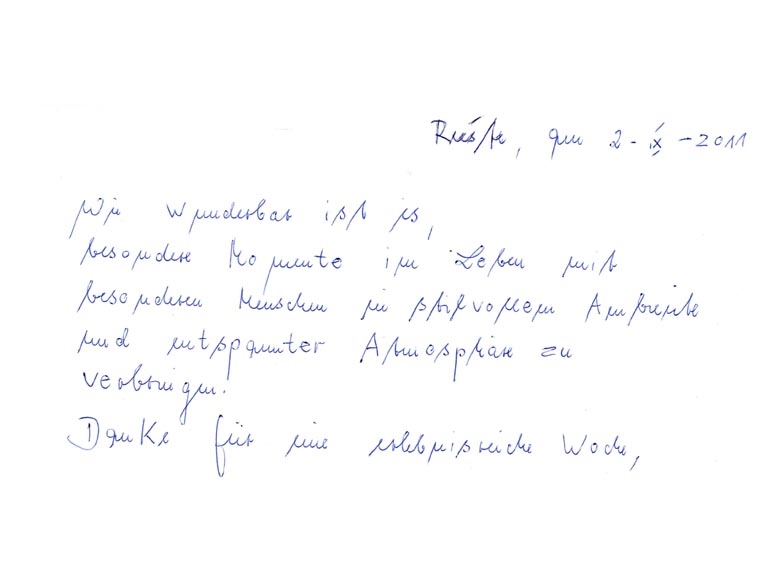 am 2-IX-2011
Wie wunderbar ist es,
besondere Momente im Leben mit
besonderen Menschen in stilvollem Ambiente
und entspannter Atmosphäre zu
verbringen.
Danke für eine erlebnisreiche Woche,